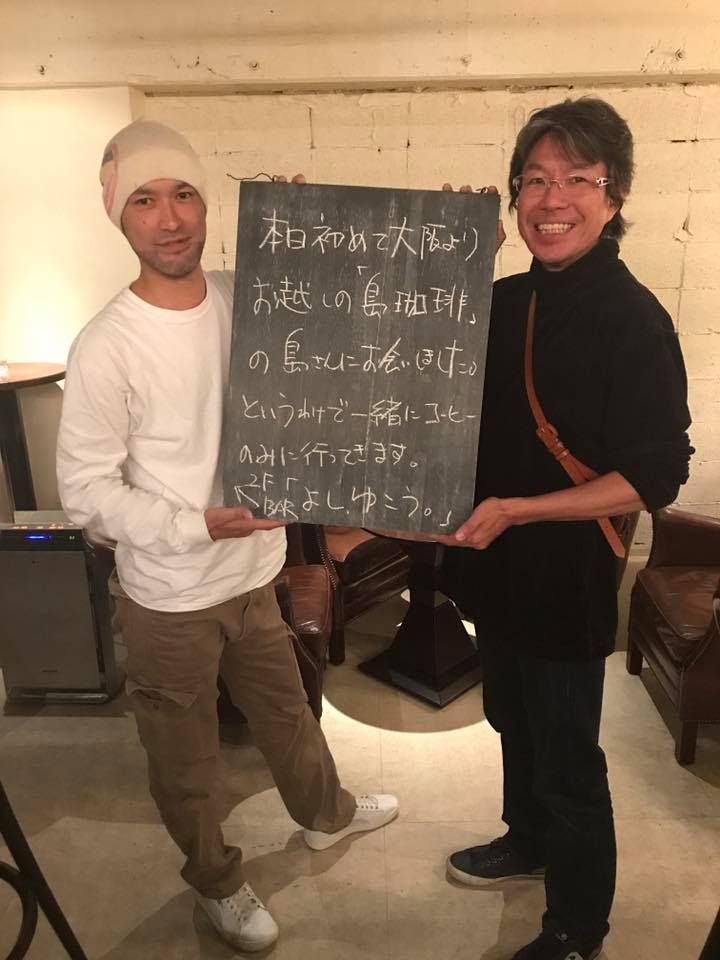 本日初めて大阪より
お越しの「島珈琲」
の島さんにお会いしました。
というわけで一緒にコーヒー
のみに行ってきます。
2F BAR「よし、ゆこう。」